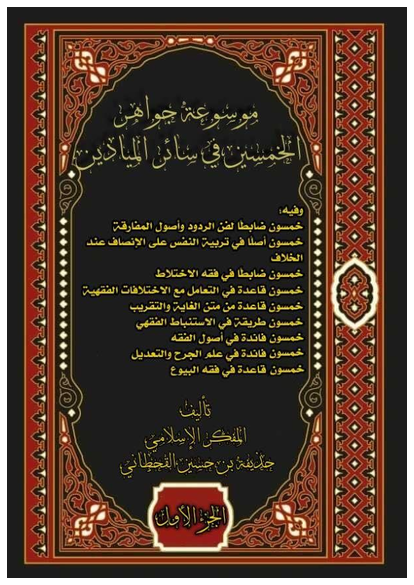 موسوعة جواهر
الخمسين في سائر الميادين
وفيه:
خمسون ضابطًا لفن الردود وأصول المفارقة
خمسون أصلًا في تربية النفس على الإنصاف عند
الخلاف
خمسون ضابطًا في فقه الاختلاط
خمسون قاعدة في التعامل مع الاختلافات الفقهية
خمسون قاعدة من متن الغاية والتقريب
خمسون طريقة في الاستنباط الفقهي
خمسون فائدة في أصول الفقه
خمسون فائدة في علم الجرح والتعديل
خمسون قاعدة في فقه البيوع
تأليف
المفكر الإسلامي
حذيفة بن حسين القحطاني
الجزء الأول